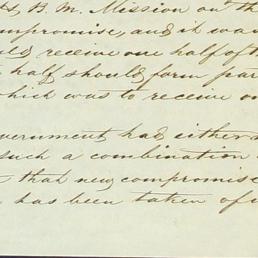 B. M. Mission on th
ompromise, and it was
receive one half of th
half should form par
which was to receive on
vernment had either a
such a combination
that new compromise
has been taken of